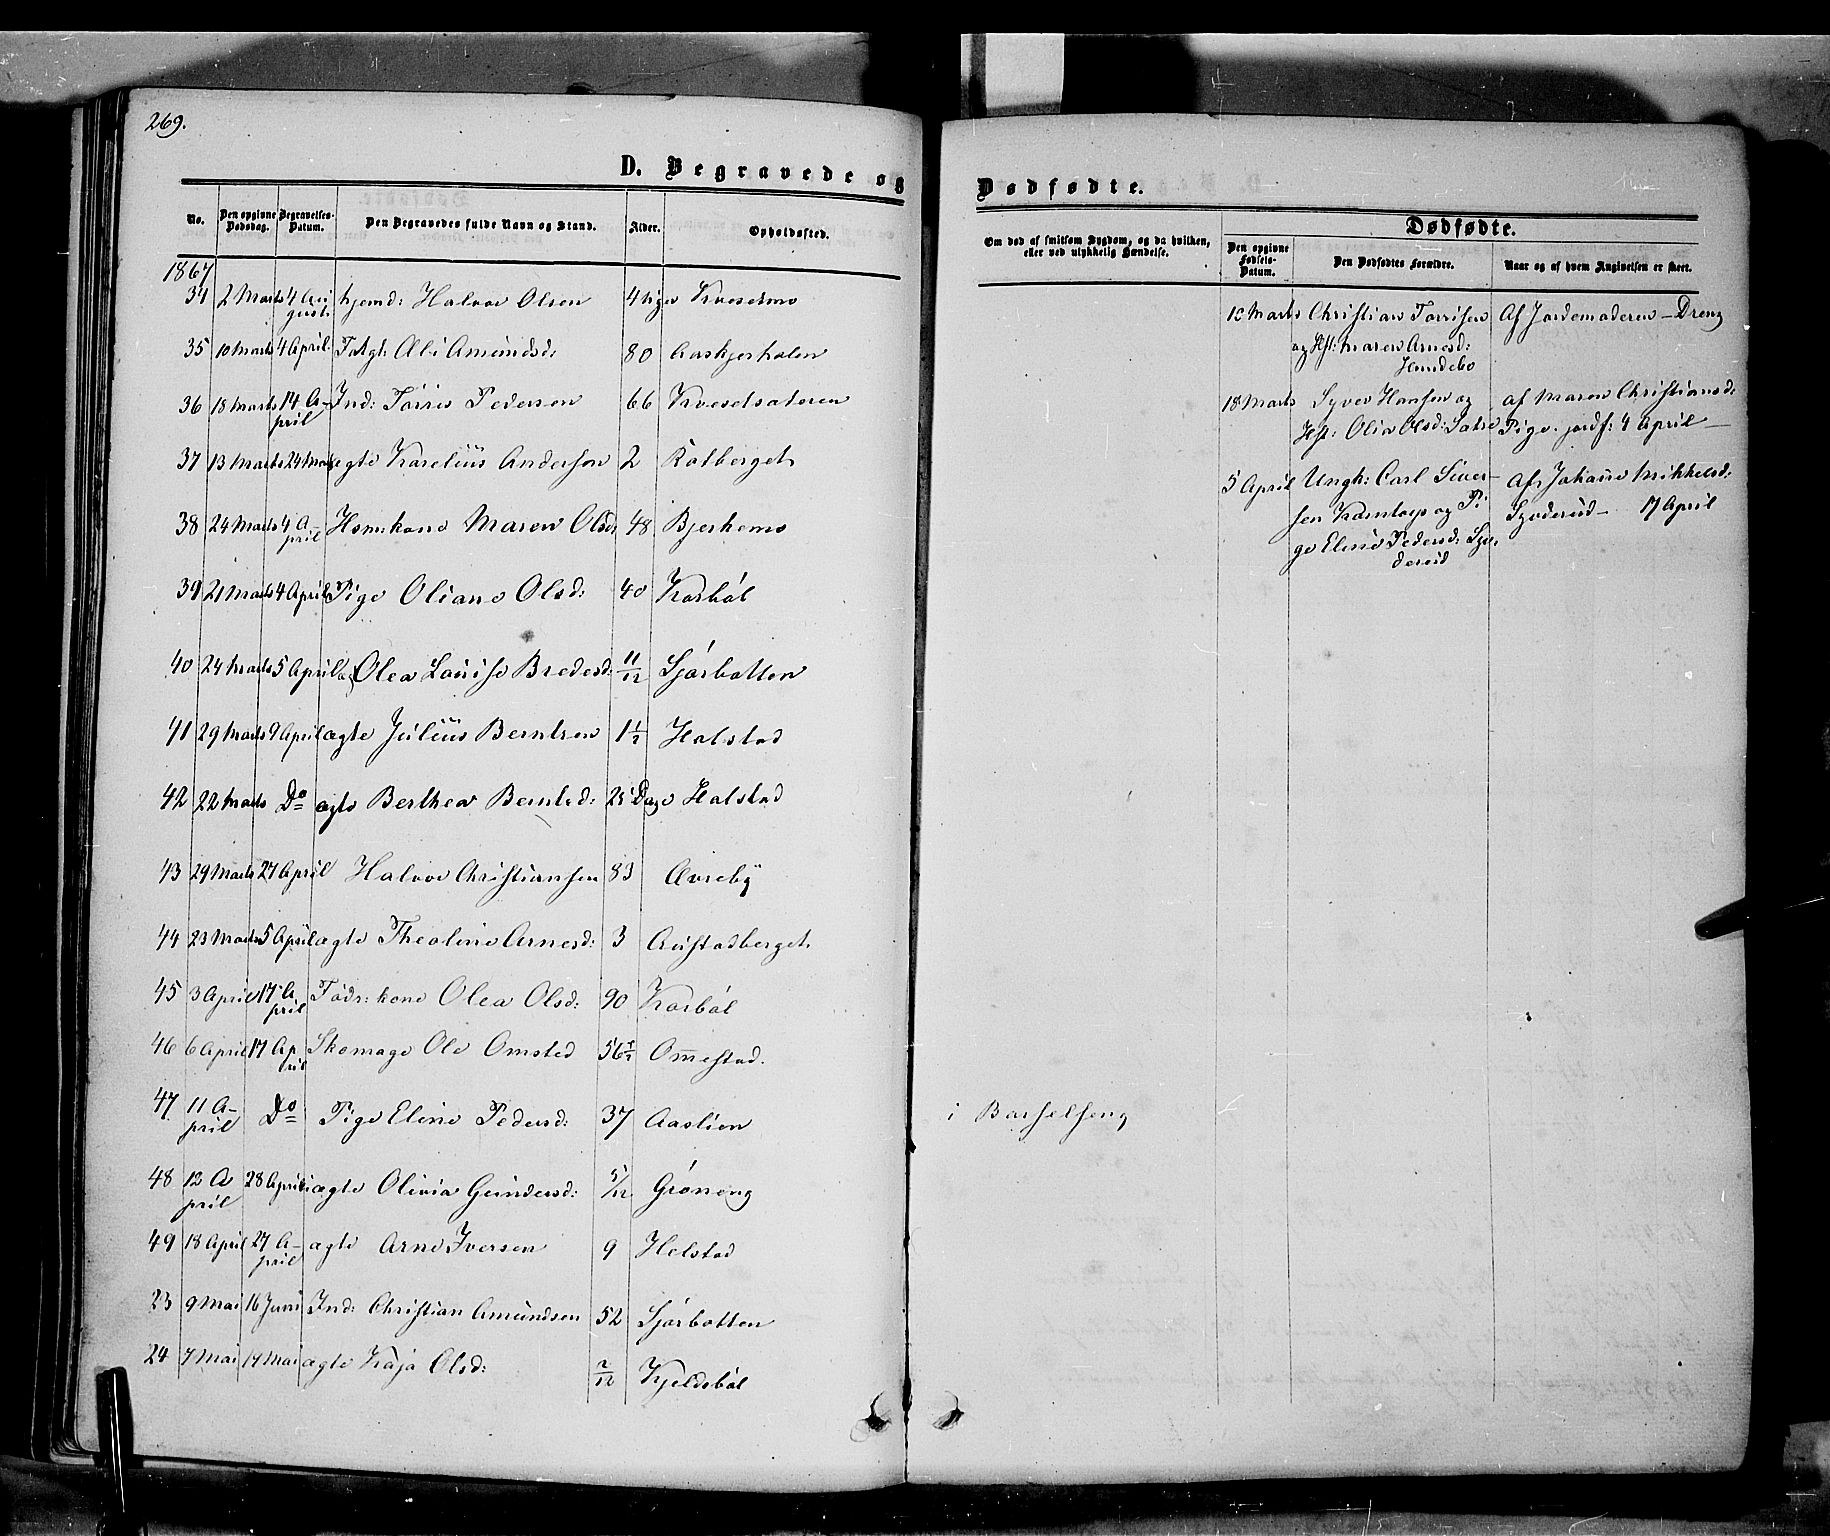 269.
D. Begravede og
No. Den opgivne Dødsdag. Begravelses-Datum. Den Begravedes fulde Navn og Stand. Alder. Opholdssted.
1867
34 2 Marts 4 August hjemd: Halvor Olsen 4 Uger
35 10 Marts 4 April Amundsd: 80
36 18 Marts 14 April Ind: Torris Pedersen 66
37 13 Marts 24 Marts ægte Karelius Anderson 2 Rotberget
38 24 Marts 4 April Hsmkone Maren Olsd: 48 Bjerkemo
39 21 Marts 4 April Pige Oliane Olsd: 40 Korsbøl
40 24 Marts 5 April Olea Louise Bredesd: 11/12 Sjørbotten
41 29 Marts 9 April ægte Julius Berntsen 1½ Halstad
42 22 Marts Do ægte Berthea Berntsd: 25 Dage Halstad
43 29 Marts 27 April Halvor Christiansen 83 Øvreby
44 23 Marts 5 April ægte Theoline Arnesd: 3 Austadberget
45 3 April 17 April Fødr: kone Olea Olsd: 90 Korsbøl
46 6 April 17 April Skomager Ole Omsted 56½ Ommestad.
47 11 April Do Pige Eline Pedersd: 37 Aaslien
48 12 April 28 April ægte Olivia Gundersd: 5/12 Grøneng
49 18 April 27 April ægte Arne Iversen 9 Helstad
23 9 Mai 16 Juni Ind: Christian Amundsen 52 Sjørbotten
24 7 Mai 17 Mai ægte Kaja Olsd: 2/12 Kjeldsbøl
Dødfødte.
Om død af smitsom Sygdom, og da hvilken, eller ved ulykkelig Hændelse.
Dødfødte.
Den opgivne Fødsels-Datum. Den Dødfødtes Forældre. Naar og af hvem Angivelsen er skeet.
12 Marts Christian Torrisen Af Jordemoderen – Dreng
og Hst: Maren Arnesd:
Hundebo
18 Marts Syver Hansen og af Maren Christiansd:
Hst: Olia Olsd: Pige. jordf: 4 April –
5 April Ungk: Carl Siver- af Johanne Mikkelsd:
sen og Pi- 17 April
ge Eline Pedersd:
i Barselseng